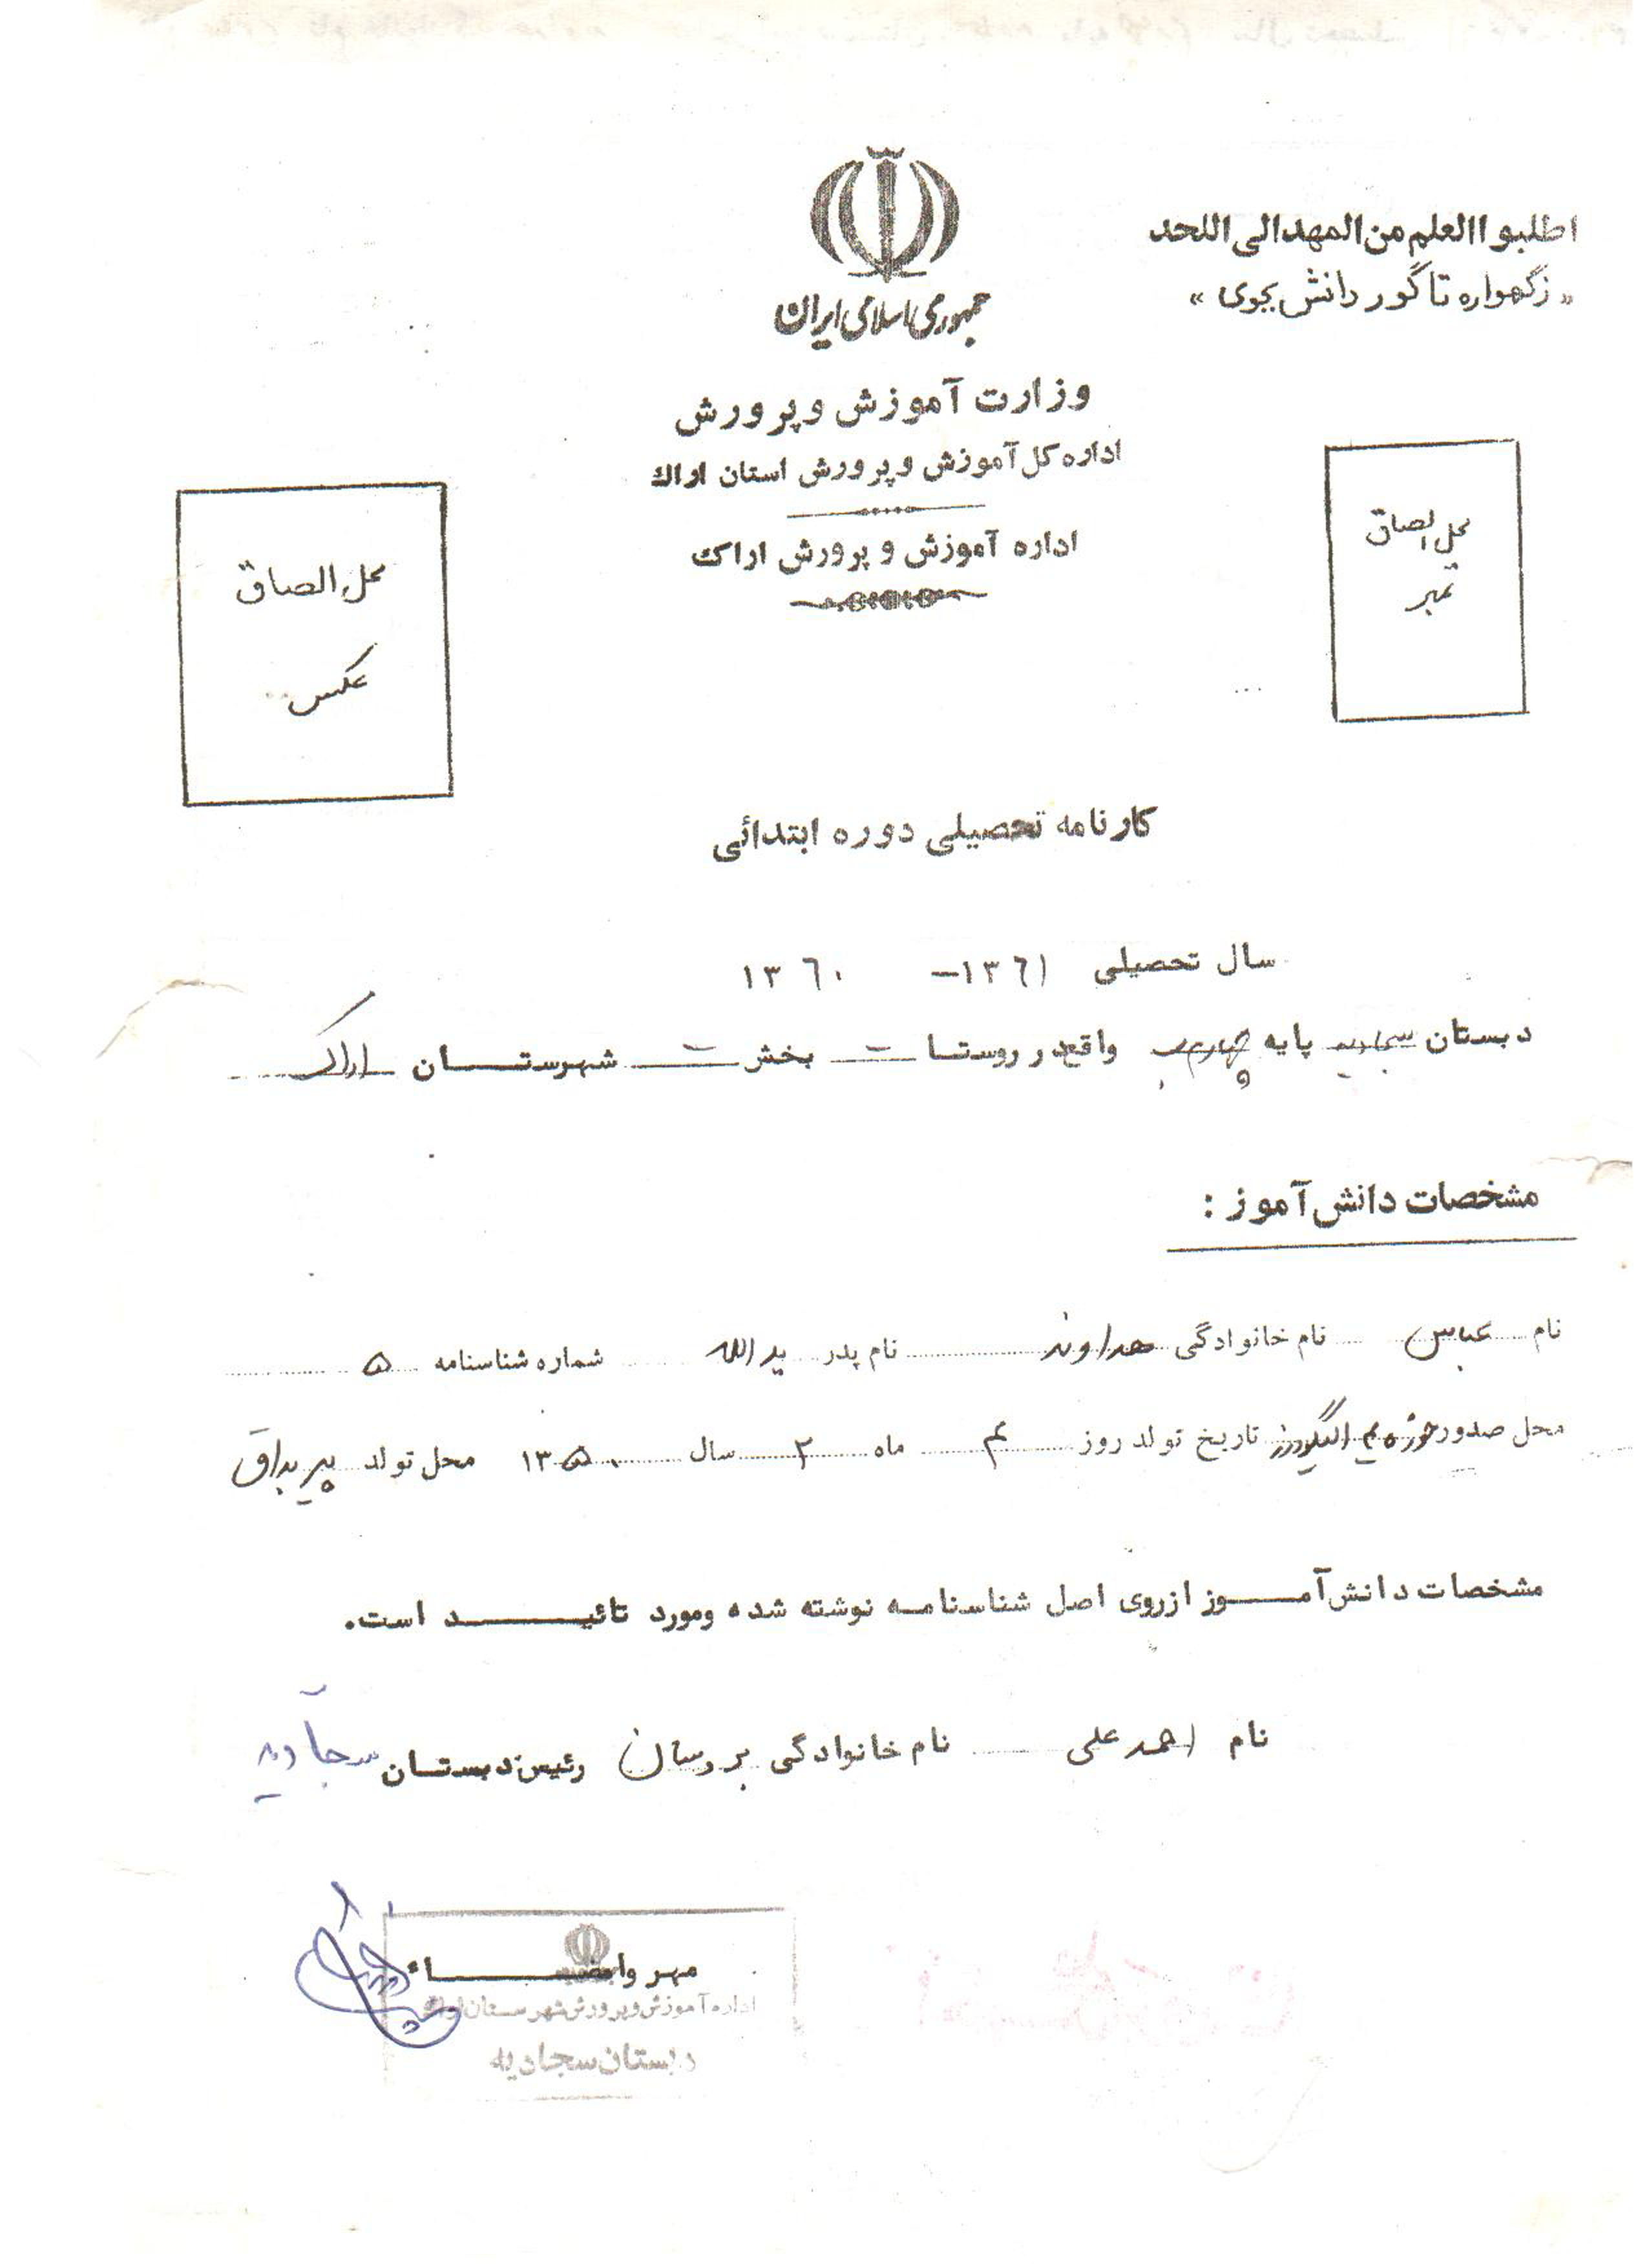 اطلبوا العلم من المهد الی اللحد
« زگهواره تا گور دانش بجوی »
جمهوری اسلامی ایران
وزارت آموزش و پرورش
اداره کل آموزش و پرورش استان اراک
اداره آموزش و پرورش اراک
محل الصاق
تمبر
محل الصاق
عکس
کارنامه تحصیلی دوره ابتدائی
سال تحصیلی ۱۳۶۱ - ۱۳۶۰
دبستان سجادیه پایه چهارم واقع در روستا بخش شهرستان اراک
مشخصات دانش آموز :
نام عباس نام خانوادگی هداوند نام پدر یدالله شماره شناسنامه ۵
محل صدور الیگودرز تاریخ تولد روز ماه ۲ سال ۱۳۵۰ محل تولد پیربداق
مشخصات دانش آموز ازروی اصل شناسنامه نوشته شده ومورد تائید است.
نام احمد علی نام خانوادگی رئیس دبستان سجادیه
مهر وامضاء
اداره آموزش و پرورش شهرستان اراک
دبستان سجادیه